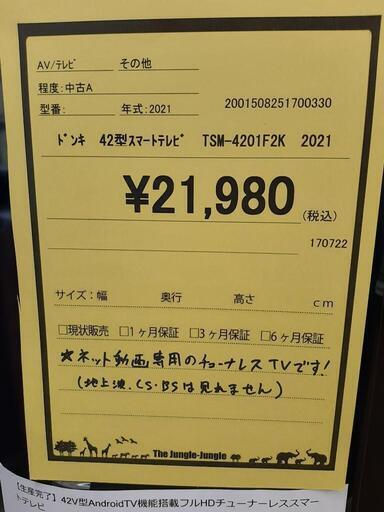 AV/テレビ その他
程度:中古A
型番: 年式:2021 2001508251700330
ドンキ 42型スマートテレビ TSM-4201F2K 2021
¥21,980(税込)
170722
サイズ:幅 奥行 高さ cm
□現状販売 □1ヶ月保証 □3ヶ月保証 □6ヶ月保証
☆ネット動画専用のチューナレスTVです!
(地上波.CS・BSは見れません)
The Jungle-Jungle
【生産完了】42V型AndroidTV機能搭載フルHDチューナーレススマー
トテレビ